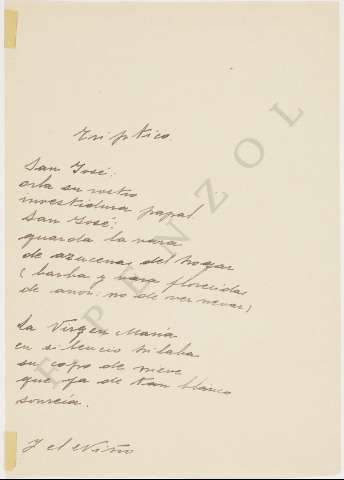 Triptico.
San José:
orla su rostro
investidura papal.
San José:
guarda la vara
de azucenas del hogar
(barba y vara florecidas
de amor: no de ver nevar)
La Virgen María
en silencio hilaba
su copo de nieve
que ya de tan blanco
sonreía.
Y el Niño
F. PENZOL